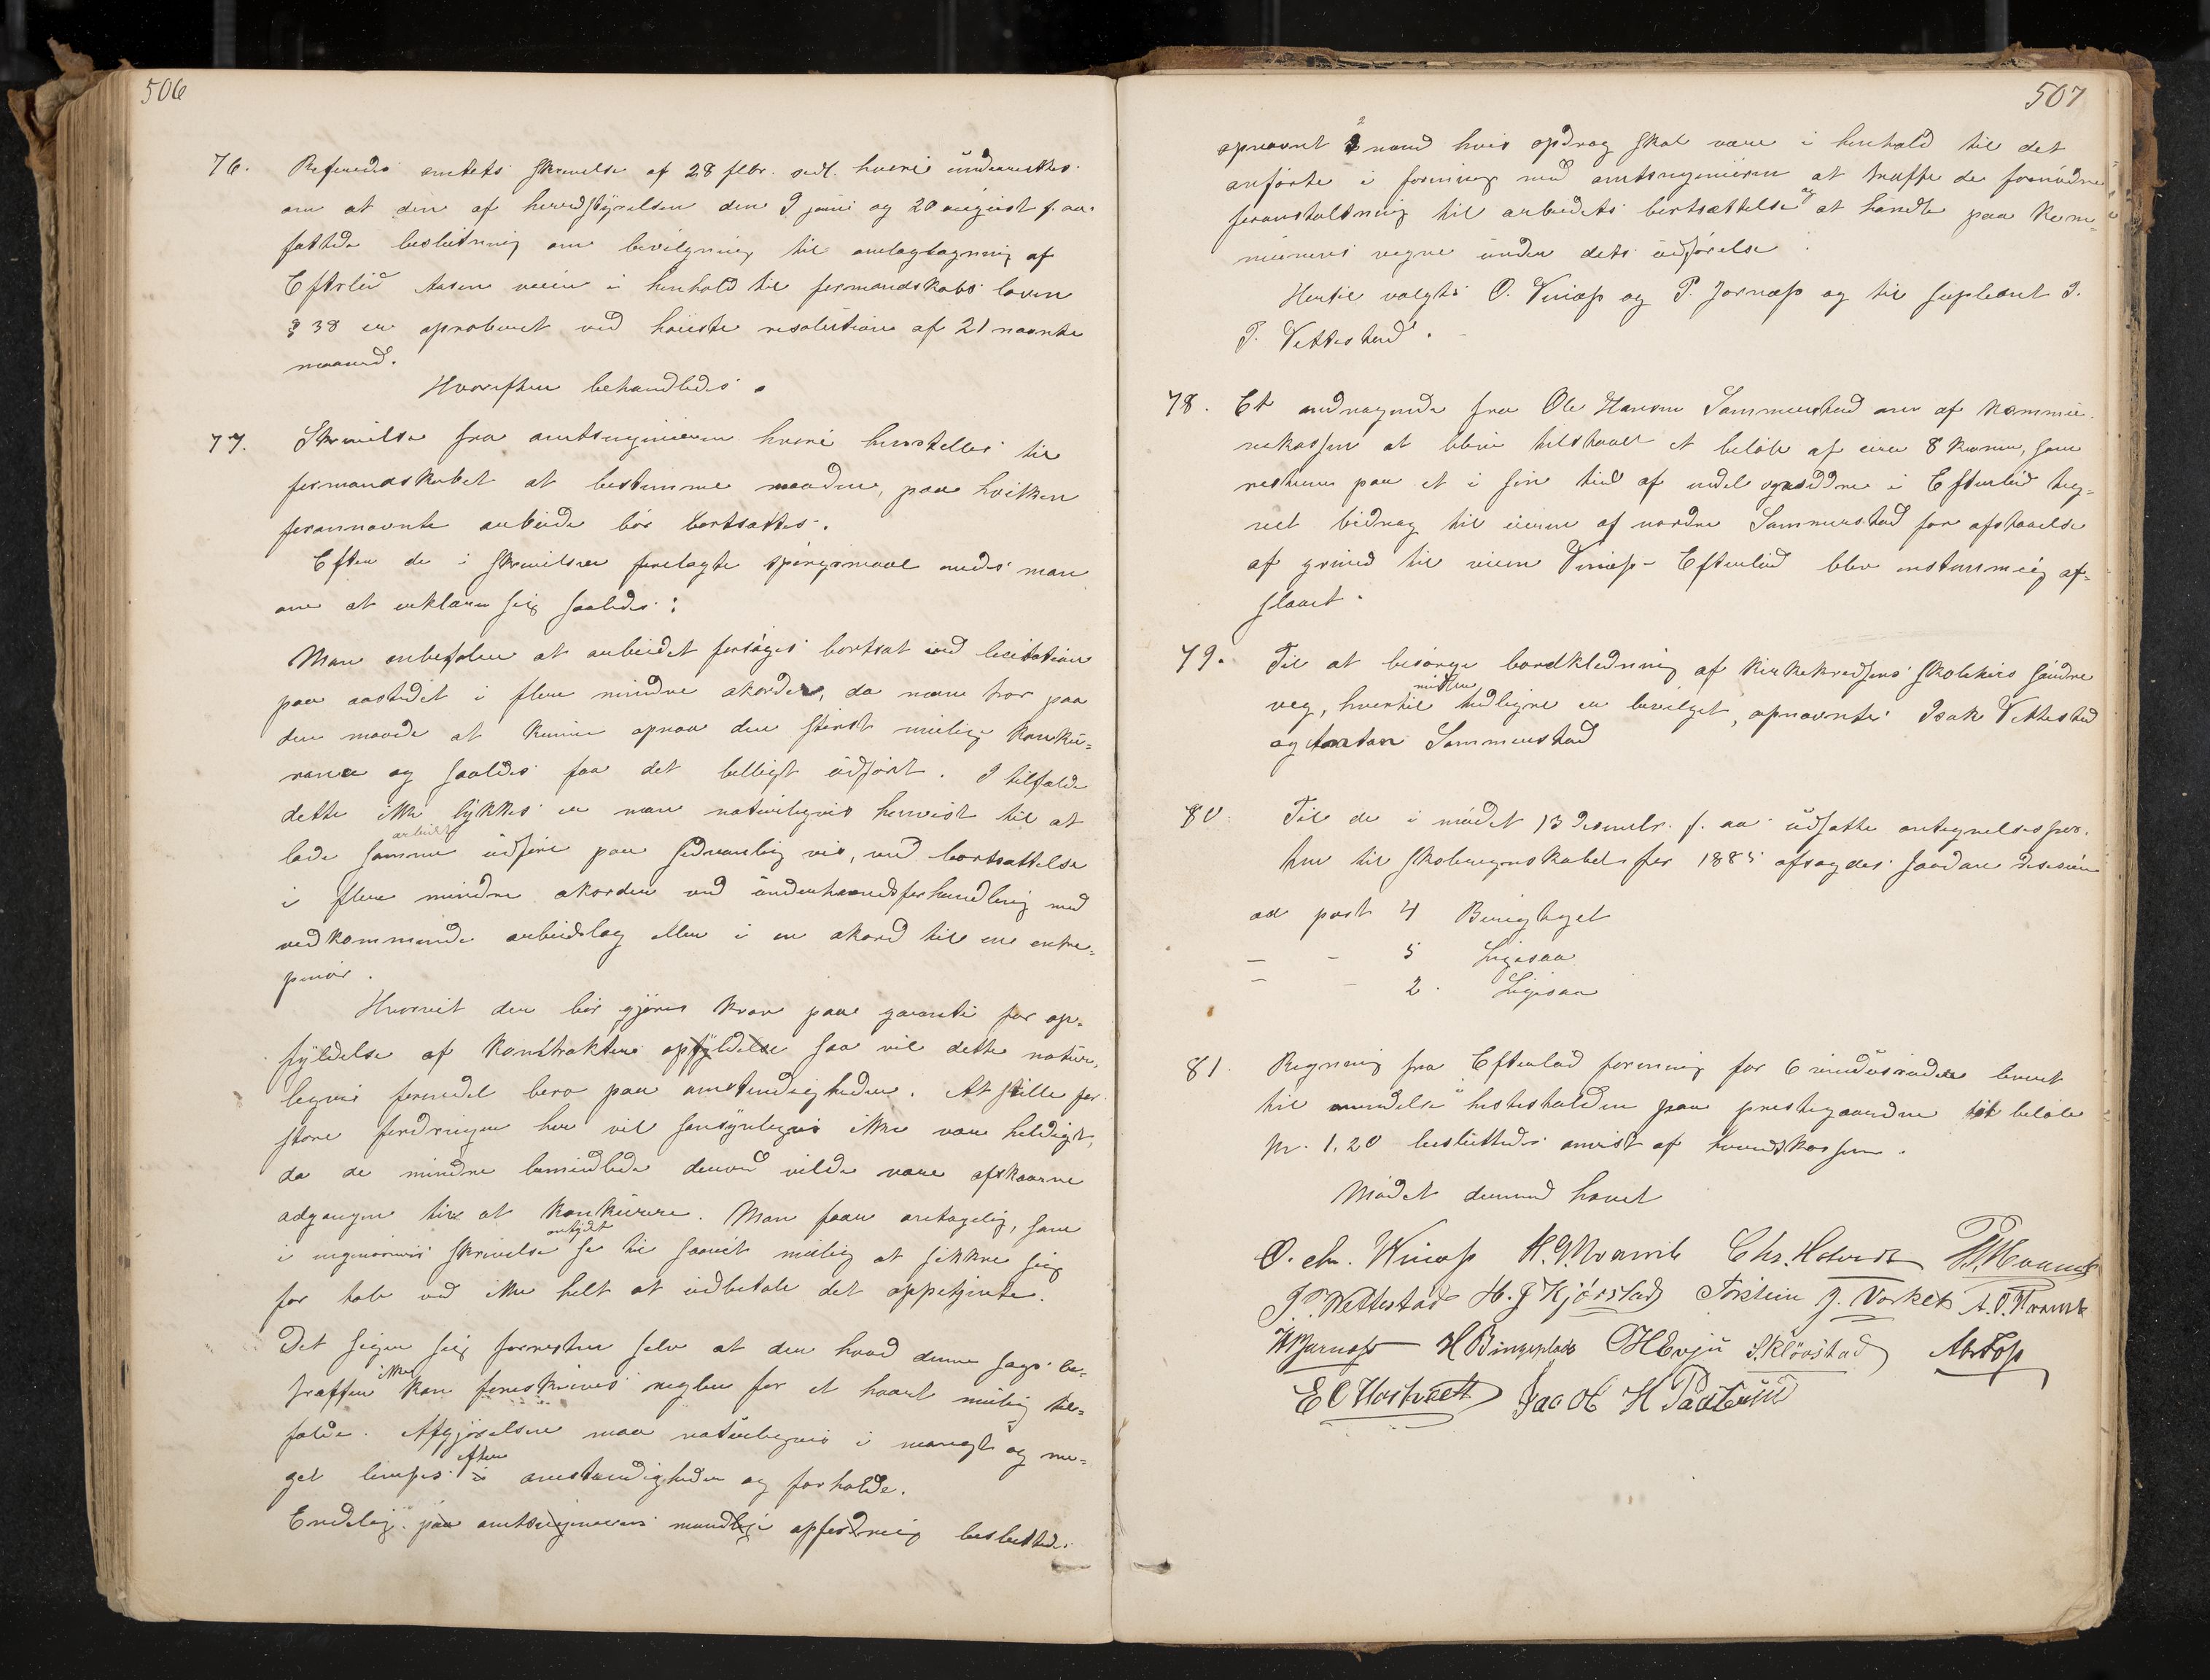 506
76. Refereredes amtets skrivelse af 28 febr. sidl. hvori underrettes
om at den af herredstyrelsen den 9 juni og 20 august f. aar
fattede beslutning om bevilgning til omlagtagning af
Efterlød Aasen veien i henhold til formandskabs loven
§ 38 er aproberet ved høieste resolution af 21 nævnte
maaned.
Hvorefter behandledes.
77. Skrivelse fra amtsingeniøren hvori henstilles til
formandskabet at bestemme maaden, paa hvilken
forannævnte arbeide bør bortsættes.
Efter de i skrivelsen forelagte spørgsmaal enedes man
om at erklære sig saaledes:
Man anbefaler at arbeidet forsøges bortsat ved licitation
paa aastedet i flere mindre akorder, da man tror paa
den maade at kunne opnaa den størst mulig konku-
rance og saaledes faa det billigst udført. I tilfælde
dette ikke lykkes er man naturligvis henvist til at
lade samme arbeidet udføre paa sedvanlig vis, ved bortsættelse
i flere mindre akorder ved underhaandsforhandling med
vedkommende arbeidslag eller i en akord til en entre-
prenør.
Hvorvit der bør gjøres krav paa garanti for op-
fyldelse af kontrakten opfyldelse saa vil dette natur-
ligvis formedel bero paa omstendigheden. At stille for
store fordringer her vil sansynligvis ikke være heldigt,
da de mindre bemidlede derved vilde være afskaarne
adgangen til at konkurere. Man faar antagelig, som
i ingeniørens skrivelse antydet se til saavit mulig at sikkre sig
for tab ved ikke helt at udbetale det optjente.
Det siger sig forresten selv at der hvad denne sags be-
træffer ikke kan foreskrives regler for et hvert mulig til-
fælde. Afgjørelsen maa naturligvis i mangt og me-
get lempes i efter omstændigheder og forholde.
Endelig paa amtsingeniørens mundlige opfordring besluttedes
507
opnævnt 2 mænd hvis opdrag skal være i henhold til det
anførte i forening med amtsingeniøren at træffe de fornødne
foranstaltning til arbeidets bortsættelse og at handle paa kom-
munens vegne under dets udførelse.
Hertil valgtes O. Vinæss og P. Jarnæss og til supleant I.
P. Vettestad.
78. Et andragende fra Ole Hansen Sammerstad om af kommu-
nekassen at blive tilstaaet et beløb af circa 8 kroner, som
resterer paa et i sin tid af endel opsiddere i Efterlød teg-
net bidrag til eieren af nordre Sammerstad for afstaaelse
af grund til veien Vinæss - Efterlød blev enstemmig af-
slaaet.
79. Til at besørge bordklædning af kirkekredsens skolehus søndre
veg, hvortil midler tidligere er bevilget, opnævntes Isak Vettestad
og Anton Sammerstad
80. Til de i mødet 13 desembr. f. aar udsatte antegnelsespos-
ter til skoleregnskabet for 1885 afsagdes saadan desision
ad post 4 Berigtiget
- - 5 Ligesaa
- - 2. Ligesaa
81. Regning fra Efterlød forening for 6 vindusruder levert
til anvendelse i hestestalden paa prestegaarden til beløb
Kr. 1,20 besluttedes anvist af herredskassen.
Mødet dermed hævet
O. Chr. Winæss H. P. Kvamb Chr. Hotvedt
P. Wettestad H. J. Kjørstad Torstein J. Vorket A. O. Kvamb
H Bingeplads C H Evju S. Kløvstad Abr Foss
E O Hostvedt Jacob H